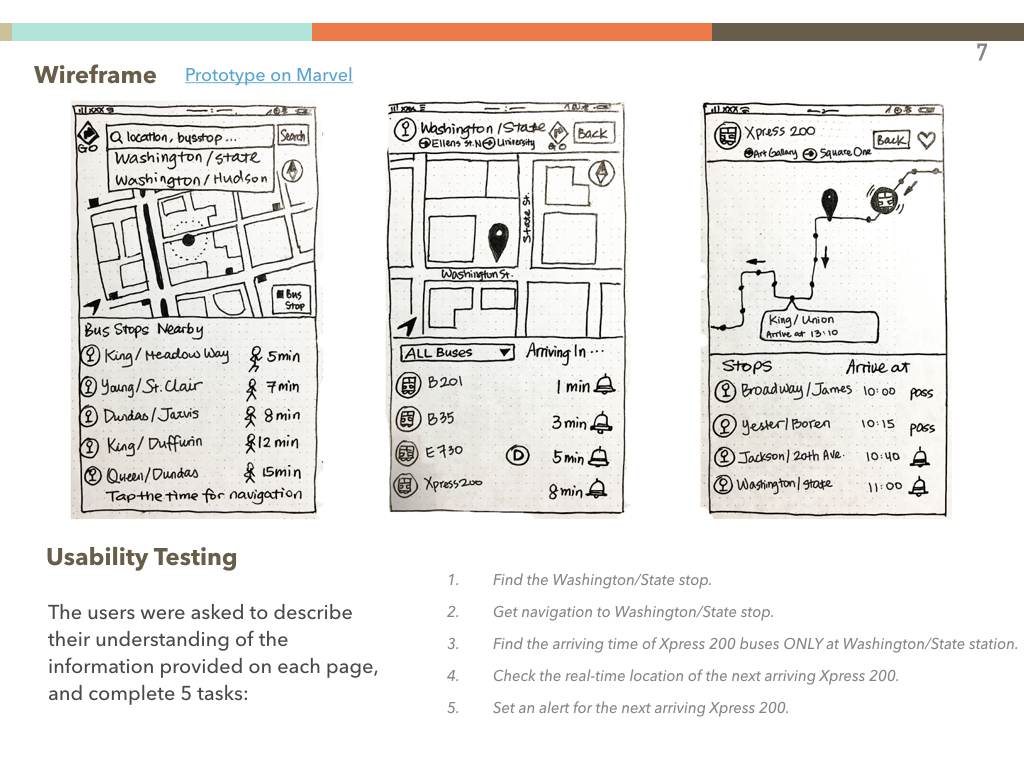 7
Wireframe Prototype on Marvel
xxx
GO
location, busstop ... Search
Washington/State
Washington/Hudson
Bus Stop
Bus Stops Nearby
King/Meadow Way 5min
Young/St. Clair 7min
Dundas/Jarvis 8min
King/Duffurin 12 min
Queen/Dundas 15min
Tap the time for navigation
Washington/State Back
Ellens St. N University GO
State St.
Washington St.
ALL Buses Arriving In ...
B201 1 min
B35 3 min
E730 D 5 min
Xpress200 8min
xxx
Xpress 200 Back
Art Gallary Square One
King/Union
Arrive at 13:10
Stops Arrive at
Broadway/James 10:00 pass
Yesler/Boren 10:15 pass
Jackson/20th Ave. 10:40
Washington/State 11:00
Usability Testing
The users were asked to describe
their understanding of the
information provided on each page,
and complete 5 tasks:
1. Find the Washington/State stop.
2. Get navigation to Washington/State stop.
3. Find the arriving time of Xpress 200 buses ONLY at Washington/State station.
4. Check the real-time location of the next arriving Xpress 200.
5. Set an alert for the next arriving Xpress 200.